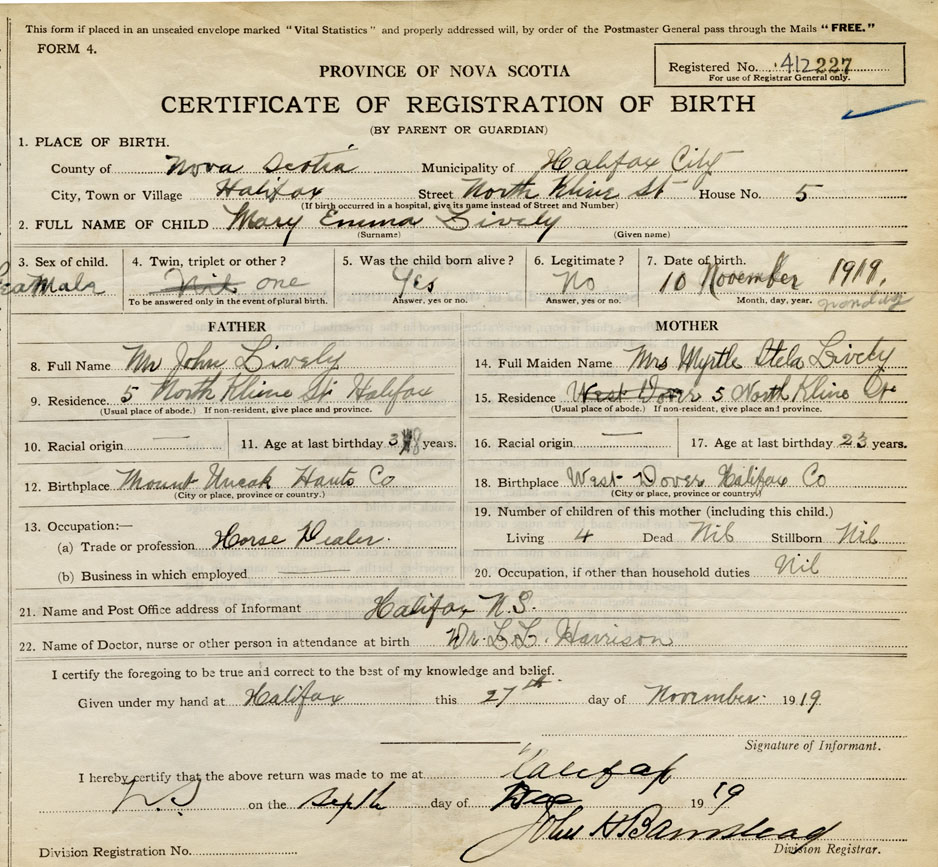 This form if placed in an unsealed envelope marked "Vital Statistics" and properly addressed will, by order of the Postmaster General pass through the Mails "FREE."
FORM 4.
Registered No. 412 227
For use of Registrar General only.
PROVINCE OF NOVA SCOTIA
CERTIFICATE OF REGISTRATION OF BIRTH
(BY PARENT OR GUARDIAN)
1. PLACE OF BIRTH.
County of Nova Scotia Municipality of Halifax City
City, Town or Village Halifax Street North Kline St House No. 5
(If birth occurred in a hospital, give its name instead of Street and Number)
2. FULL NAME OF CHILD Mary Emma Lively
(Surname) (Given name)
3. Sex of child. 4. Twin, triplet or other? 5. Was the child born alive? 6. Legitimate? 7. Date of birth.
feaMala one Yes No 10 November 1919.
To be answered only in the event of plural birth. Answer, yes or no. Answer, yes or no. Month, day, year. monday
FATHER MOTHER
8. Full Name Mr John Lively 14. Full Maiden Name Mrs Myrtle Stela Lively
9. Residence 5 North Kline St Halifax 15. Residence West Dover 5 North Kline St
(Usual place of abode.) If non-resident, give place and province. (Usual place of abode.) If non-resident, give place and province.
10. Racial origin 11. Age at last birthday years. 16. Racial origin 17. Age at last birthday 23 years.
12. Birthplace Mount Uncak Hants Co 18. Birthplace West Dover Halifax Co
(City or place, province or country.) (City or place, province or country)
13. Occupation:— 19. Number of children of this mother (including this child.)
(a) Trade or profession Horse Dealer. Living 4 Dead Nil Stillborn Nil
(b) Business in which employed 20. Occupation, if other than household duties Nil
21. Name and Post Office address of Informant Halifax N.S.
22. Name of Doctor, nurse or other person in attendance at birth Dr. L.L. Harrison
I certify the foregoing to be true and correct to the best of my knowledge and belief.
Given under my hand at Halifax this 27th day of November 1919.
Signature of Informant.
I hereby certify that the above return was made to me at Halifax
N.S on the day of Dec 1919
John H Barnstead
Division Registration No. Division Registrar.